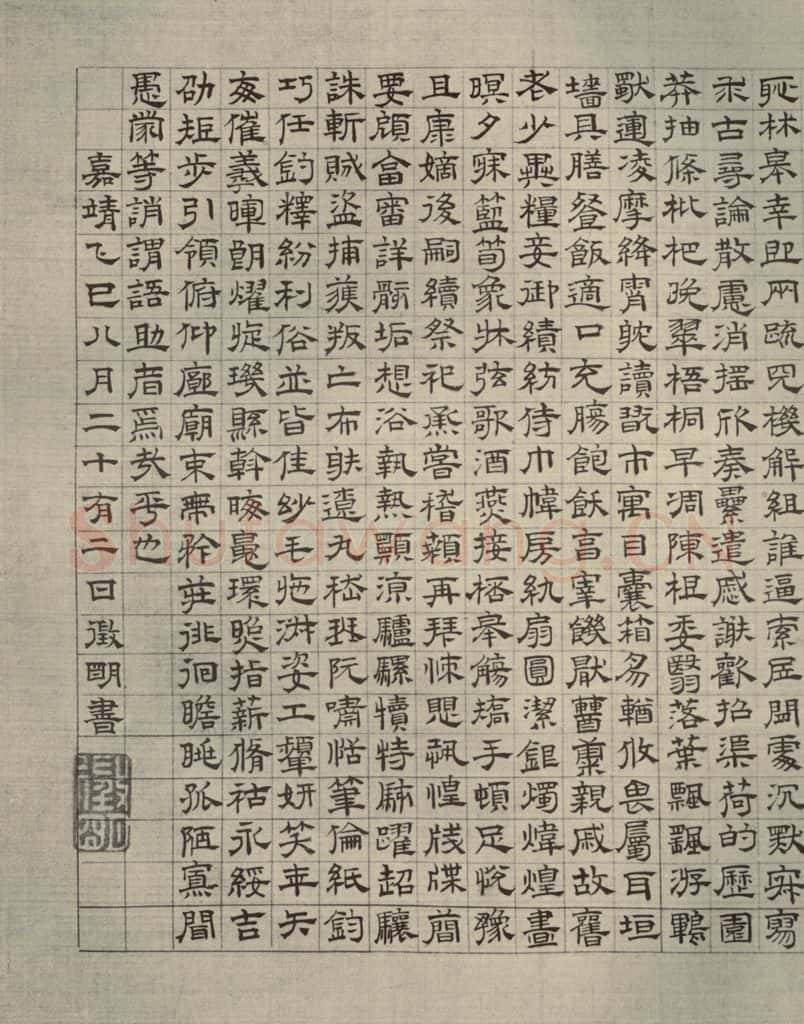 恥林皋幸即兩疏見機解組誰逼索居閒處沉默寂寥
求古尋論散慮消搖欣奏累遣慼謝歡招渠荷的歷園
莽抽條枇杷晚翠梧桐早凋陳根委翳落葉飄颻游鵾
獸運凌摩絳霄耽讀翫市寓目囊箱易輶攸畏屬耳垣
墻具膳飡飯適口充腸飽飫亯宰饑厭糟糠親戚故舊
老少異糧妾御績紡侍巾帷房紈扇圓潔銀燭煒煌晝
暝夕寐籃筍象牀弦歌酒讌接桮舉觴矯手頓足悅豫
且康嫡後嗣續祭祀烝嘗稽顙再拜悚懼恐惶牋牒簡
要顧答審詳骸垢想浴執熱願涼驢騾犢特駭躍超驤
誅斬賊盜捕獲叛亡布射遼丸嵇琴阮嘯恬筆倫紙鈞
巧任釣釋紛利俗並皆佳妙毛施淑姿工顰妍笑年矢
每催羲暉朗燿旋璣縣斡晦魄環照指薪脩祜永綏吉
劭矩步引領俯仰廊廟束帶矜莊徘徊瞻眺孤陋寡聞
愚蒙等誚謂語助者焉哉乎也
嘉靖乙巳八月二十有二日徵明書
Shufawang.CN